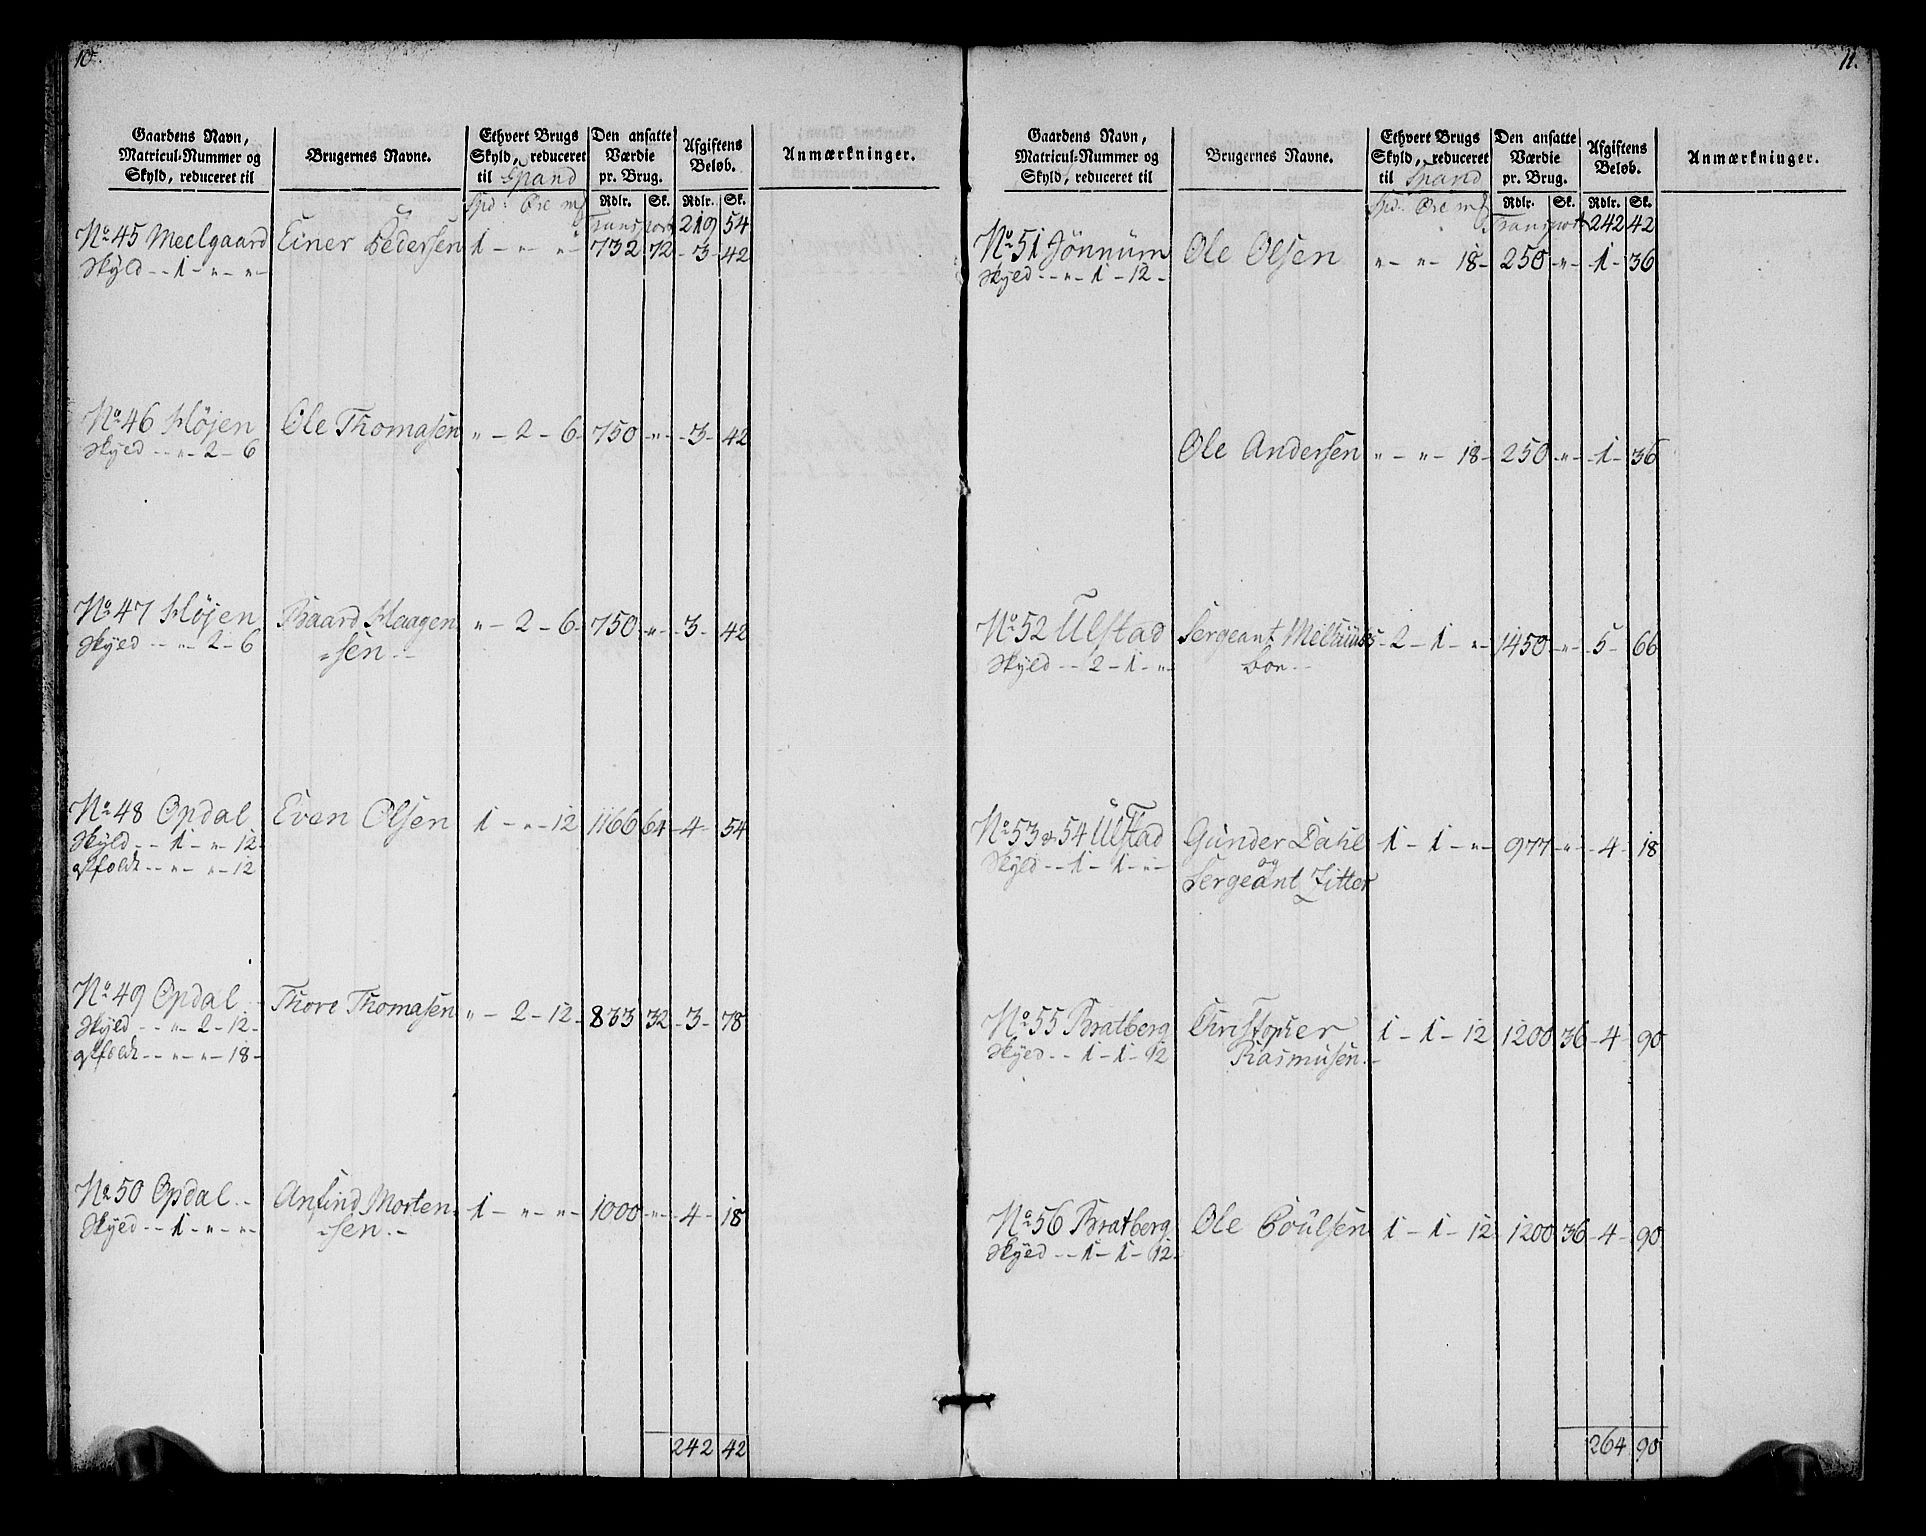 10.
Gaardens Navn, Matricul-Nummer og Skyld, reduceret til | Brugernes Navne. | Ethvert Brugs Skyld, reduceret til Spand | Den ansatte Værdie pr. Brug. | Afgiftens Beløb. | Anmærkninger.
Spd. Øre mk | Rdlr. | Sk. | Rdlr. | Sk.
Transport 219 54
No 45 Meelgaard Einer Pedersen 1 - " - " 732 72 - 3 - 42
Skyld - - 1 - " - "
No 46 Højen Ole Thomasen " - 2 - 6 - 750 - " - 3 - 42
Skyld - - " - 2 - 6
No 47 Højen Baard Haagen " - 2 - 6 - 750 - " - 3 - 42
Skyld - - " - 2 - 6 sen - -
No 48 Opdal Even Olsen 1 - " - 12 1166 64 - 4 - 54
Skyld - - 1 - " - 12
Affældt - - " - " - 12
No 49 Opdal Thore Thomasen " - 2 - 12 - 833 32 - 3 - 78
Skyld - - " - 2 - 12 -
Affældt - - " - " - 18 -
No 50 Opdal - - Anfind Morten 1 - " - " - 1000 - " - 4 - 18
Skyld - - 1 - " - " - sen - -
242 42
11.
Gaardens Navn, Matricul-Nummer og Skyld, reduceret til | Brugernes Navne. | Ethvert Brugs Skyld, reduceret til Spand | Den ansatte Værdie pr. Brug. | Afgiftens Beløb. | Anmærkninger.
Spd. Øre mk | Rdlr. | Sk. | Rdlr. | Sk.
Transport 242 42
No 51 Jönnum Ole Olsen " - " - 18 - 250 - " - 1 - 36
Skyld - - " - 1 - 12 -
Ole Andersen " - " - 18 - 250 - " - 1 - 36
No 52 Ulstad Sergeant Melhuus 2 - 1 - " - 1450 - " - 5 - 66
Skyld - - 2 - 1 - " boe - -
No 53 & 54 Ulstad Gunder Dahl 1 - 1 - " - 977 - " - 4 - 18
Skyld - - 1 - 1 - " og
Sergeant Zitter
No 55 Bratberg Christopher 1 - 1 - 12 1200 36 - 4 - 90
Skyld - - 1 - 1 - 12 Rasmusen - -
No 56 Bratberg Ole Poulsen 1 - 1 - 12 1200 36 - 4 - 90
Skyld - - 1 - 1 - 12 -
264 90